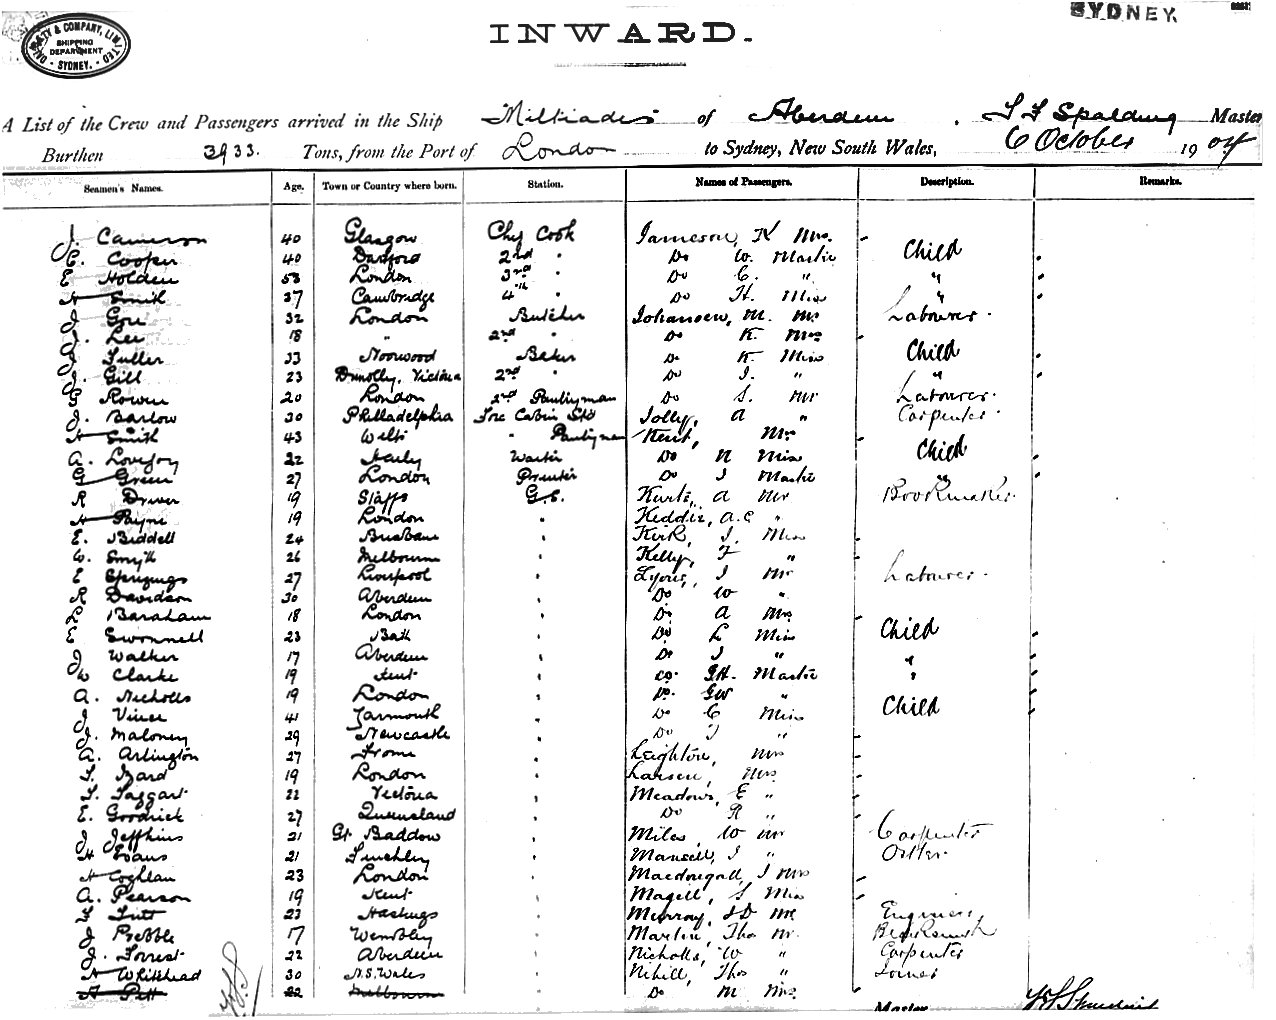 DALGETY & COMPANY, LIMITED
SHIPPING
DEPARTMENT
SYDNEY.
SYDNEY.
INWARD.
A List of the Crew and Passengers arrived in the Ship Miltiades of Aberdeen, Master
Burthen 3933. Tons, from the Port of London to Sydney, New South Wales, 6 October 1904
Seamen's Names. Age. Town or Country where born. Station. Names of Passengers. Description. Remarks.
J. Cameron 40 Glasgow Chef Cook Jameson, K Mrs.
C. Cooper 40 Dartford 2nd " Do W. Master Child
E Holden 53 London 3rd " Do C. " "
H Smith 37 Cambridge 4th " Do H. Miss "
J. Gou 32 London Butcher Johansen, M. Mr Labourer.
J. Lee 18 " 2nd " Do K. Mrs
J Fuller 33 Norwood Baker Do K Miss Child
J. Gill 23 Dunolly, Victoria 2nd " Do J. " "
G Rowen 20 London 2nd Pantryman Do S. Mr Labourer.
J. Barlow 30 Philadelphia Fore Cabin Std Jolly, A " Carpenter.
H Smith 43 Wilts " Pantryman Kent, Mrs
A. Lovejoy 22 Waiter Do N Miss Child
G Green 27 London Printer Do J Master "
R Driver 19 Staffs G.S. Kurtz, A Mr Bookmaker.
H Payne 19 London " Keddie, A.C "
E. Biddell 24 Brisbane " Kirk, J. Miss
W. Smyth 26 Melbourne " Kelly, F "
E 27 Liverpool " Lyons, J Mr Labourer.
R Davidson 30 Aberdeen " Do W "
L Baraham 18 London " Do A Mrs
E Swonnell 23 Bath " Do L Miss Child
J Walker 17 Aberdeen " Do J " "
W Clarke 19 Kent " Do G.H. Master "
A. Nicholls 19 London " Do. GW "
J Viner 41 Yarmouth " Do C Miss Child
J. Maloney 29 Newcastle " Do J "
A. Arlington 27 Frome " Leighton, Mrs
T. Izard 19 London " Larsen, Mrs
T. Taggart 22 Victoria " Meadows, E "
E. Goodrick 27 Queensland " Do R "
J Jeffkins 21 Gt Baddow " Miles, W Mr Carpenter
H Evans 21 Finchley " Mansell, J " Ostler.
H Coghlan 23 London " Macdougall, J Mrs
A. Pearson 19 Kent " Magill, S Miss
F Tutt 23 Hastings " Murray, J.D Mr Engineer,
J Prebble 17 Wembley " Martin, Thos Mr. Blacksmith
J. Forrest 22 Aberdeen " Nicholls, W " Carpenter
H Whitehead 30 N.S. Wales " Nihill, Thos " Joiner
H Pett 22 Melbourne Do M Mrs.
Master